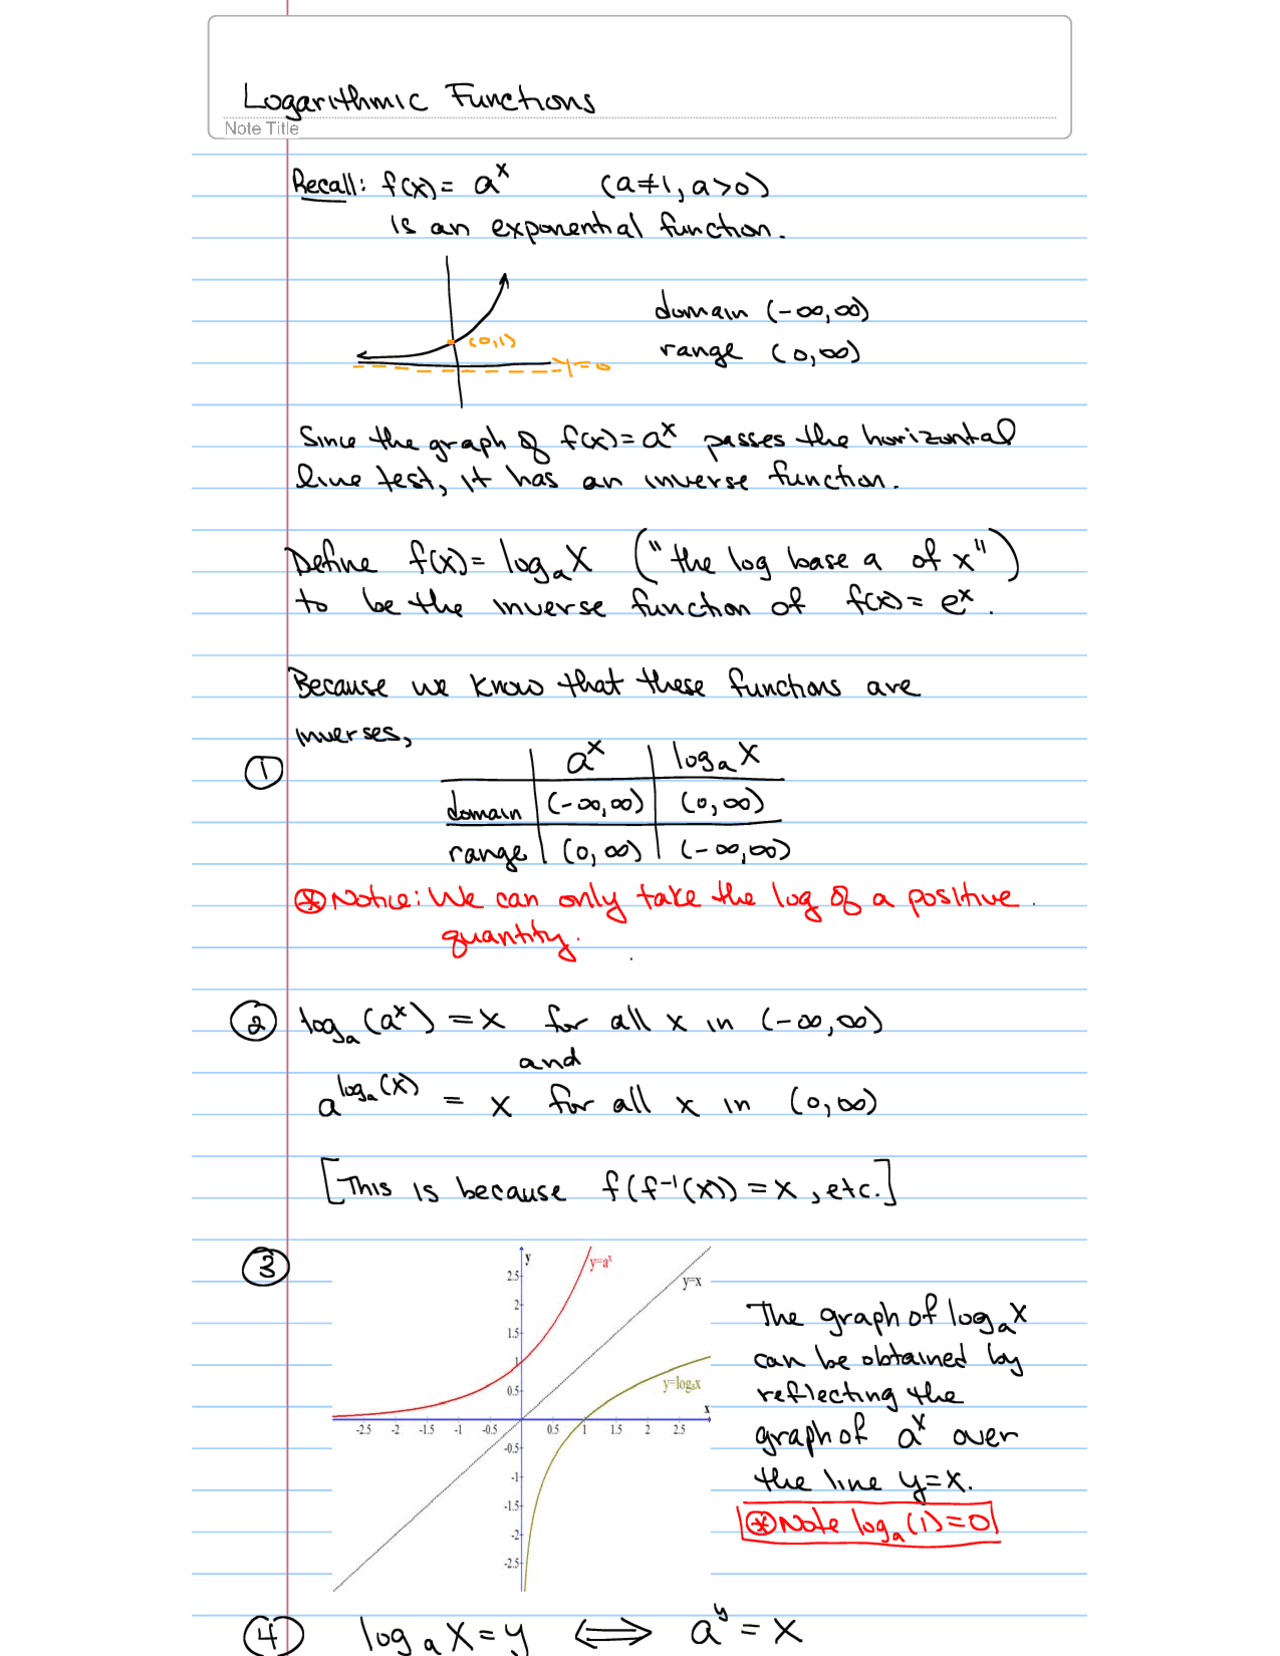 Logarithmic Functions
Note Title
Recall: f(x) = aˣ (a≠1, a>0)
is an exponential function.
(0,1)
y=0
domain (-∞,∞)
range (0,∞)
Since the graph of f(x)=aˣ passes the horizontal
line test, it has an inverse function.
Define f(x)= logₐX ("the log base a of x")
to be the inverse function of f(x)= eˣ.
Because we know that these functions are
inverses,
① aˣ logₐX
domain (-∞,∞) (0,∞)
range (0,∞) (-∞,∞)
⊛ Notice: We can only take the log of a positive
quantity.
② logₐ(aˣ) = x for all x in (-∞,∞)
and
a^logₐ(x) = x for all x in (0,∞)
[This is because f(f⁻¹(x)) = x, etc.]
③
y
y=aˣ
y=x
y=logₐx
x
2.5
2
1.5
1
0.5
-2.5 -2 -1.5 -1 -0.5 0.5 1 1.5 2 2.5
-0.5
-1
-1.5
-2
-2.5
The graph of logₐX
can be obtained by
reflecting the
graph of aˣ over
the line y=x.
⊛ Note logₐ(1)=0
④ logₐX=y ⟺ aʸ = x